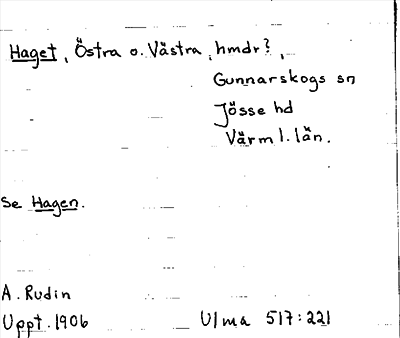 Haget, Östra o. Västra, hmdr?,
Gunnarskogs sn
Jösse hd
Värml. län.
Se Hagen.
A. Rudin
Uppt. 1906
Ulma 517:221